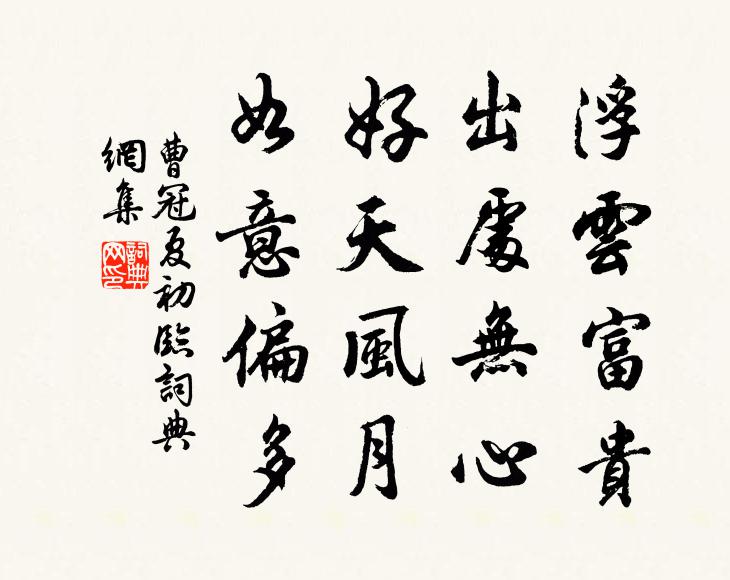 浮雲富貴
出處無心
好天風月
如意偏多
曹冠夏初臨詞典
網集
詞典网印